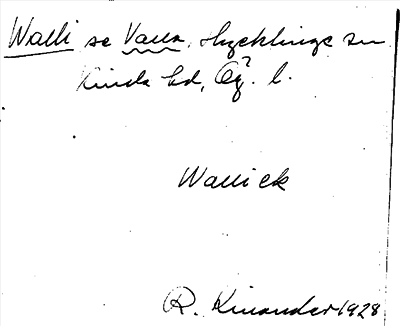 Walli se Valla, Skeklinge sn
Kinda hd, Ög. l.
Wallick
R. Kinander 1928